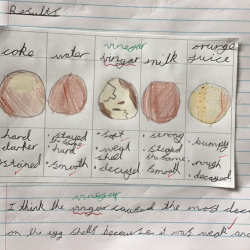 Results
coke
water
vinegar
vingar
milk
orange
juice
hard
darker
stained
• stayed
the same
hard
• smooth
• soft
• weak
shell
• decayed
• strong
• stayed
the same
• smooth
• bumpy
• rough
• decayed
vinegar
I think the vingar caused the most deca
on the egg shells because it was weak and